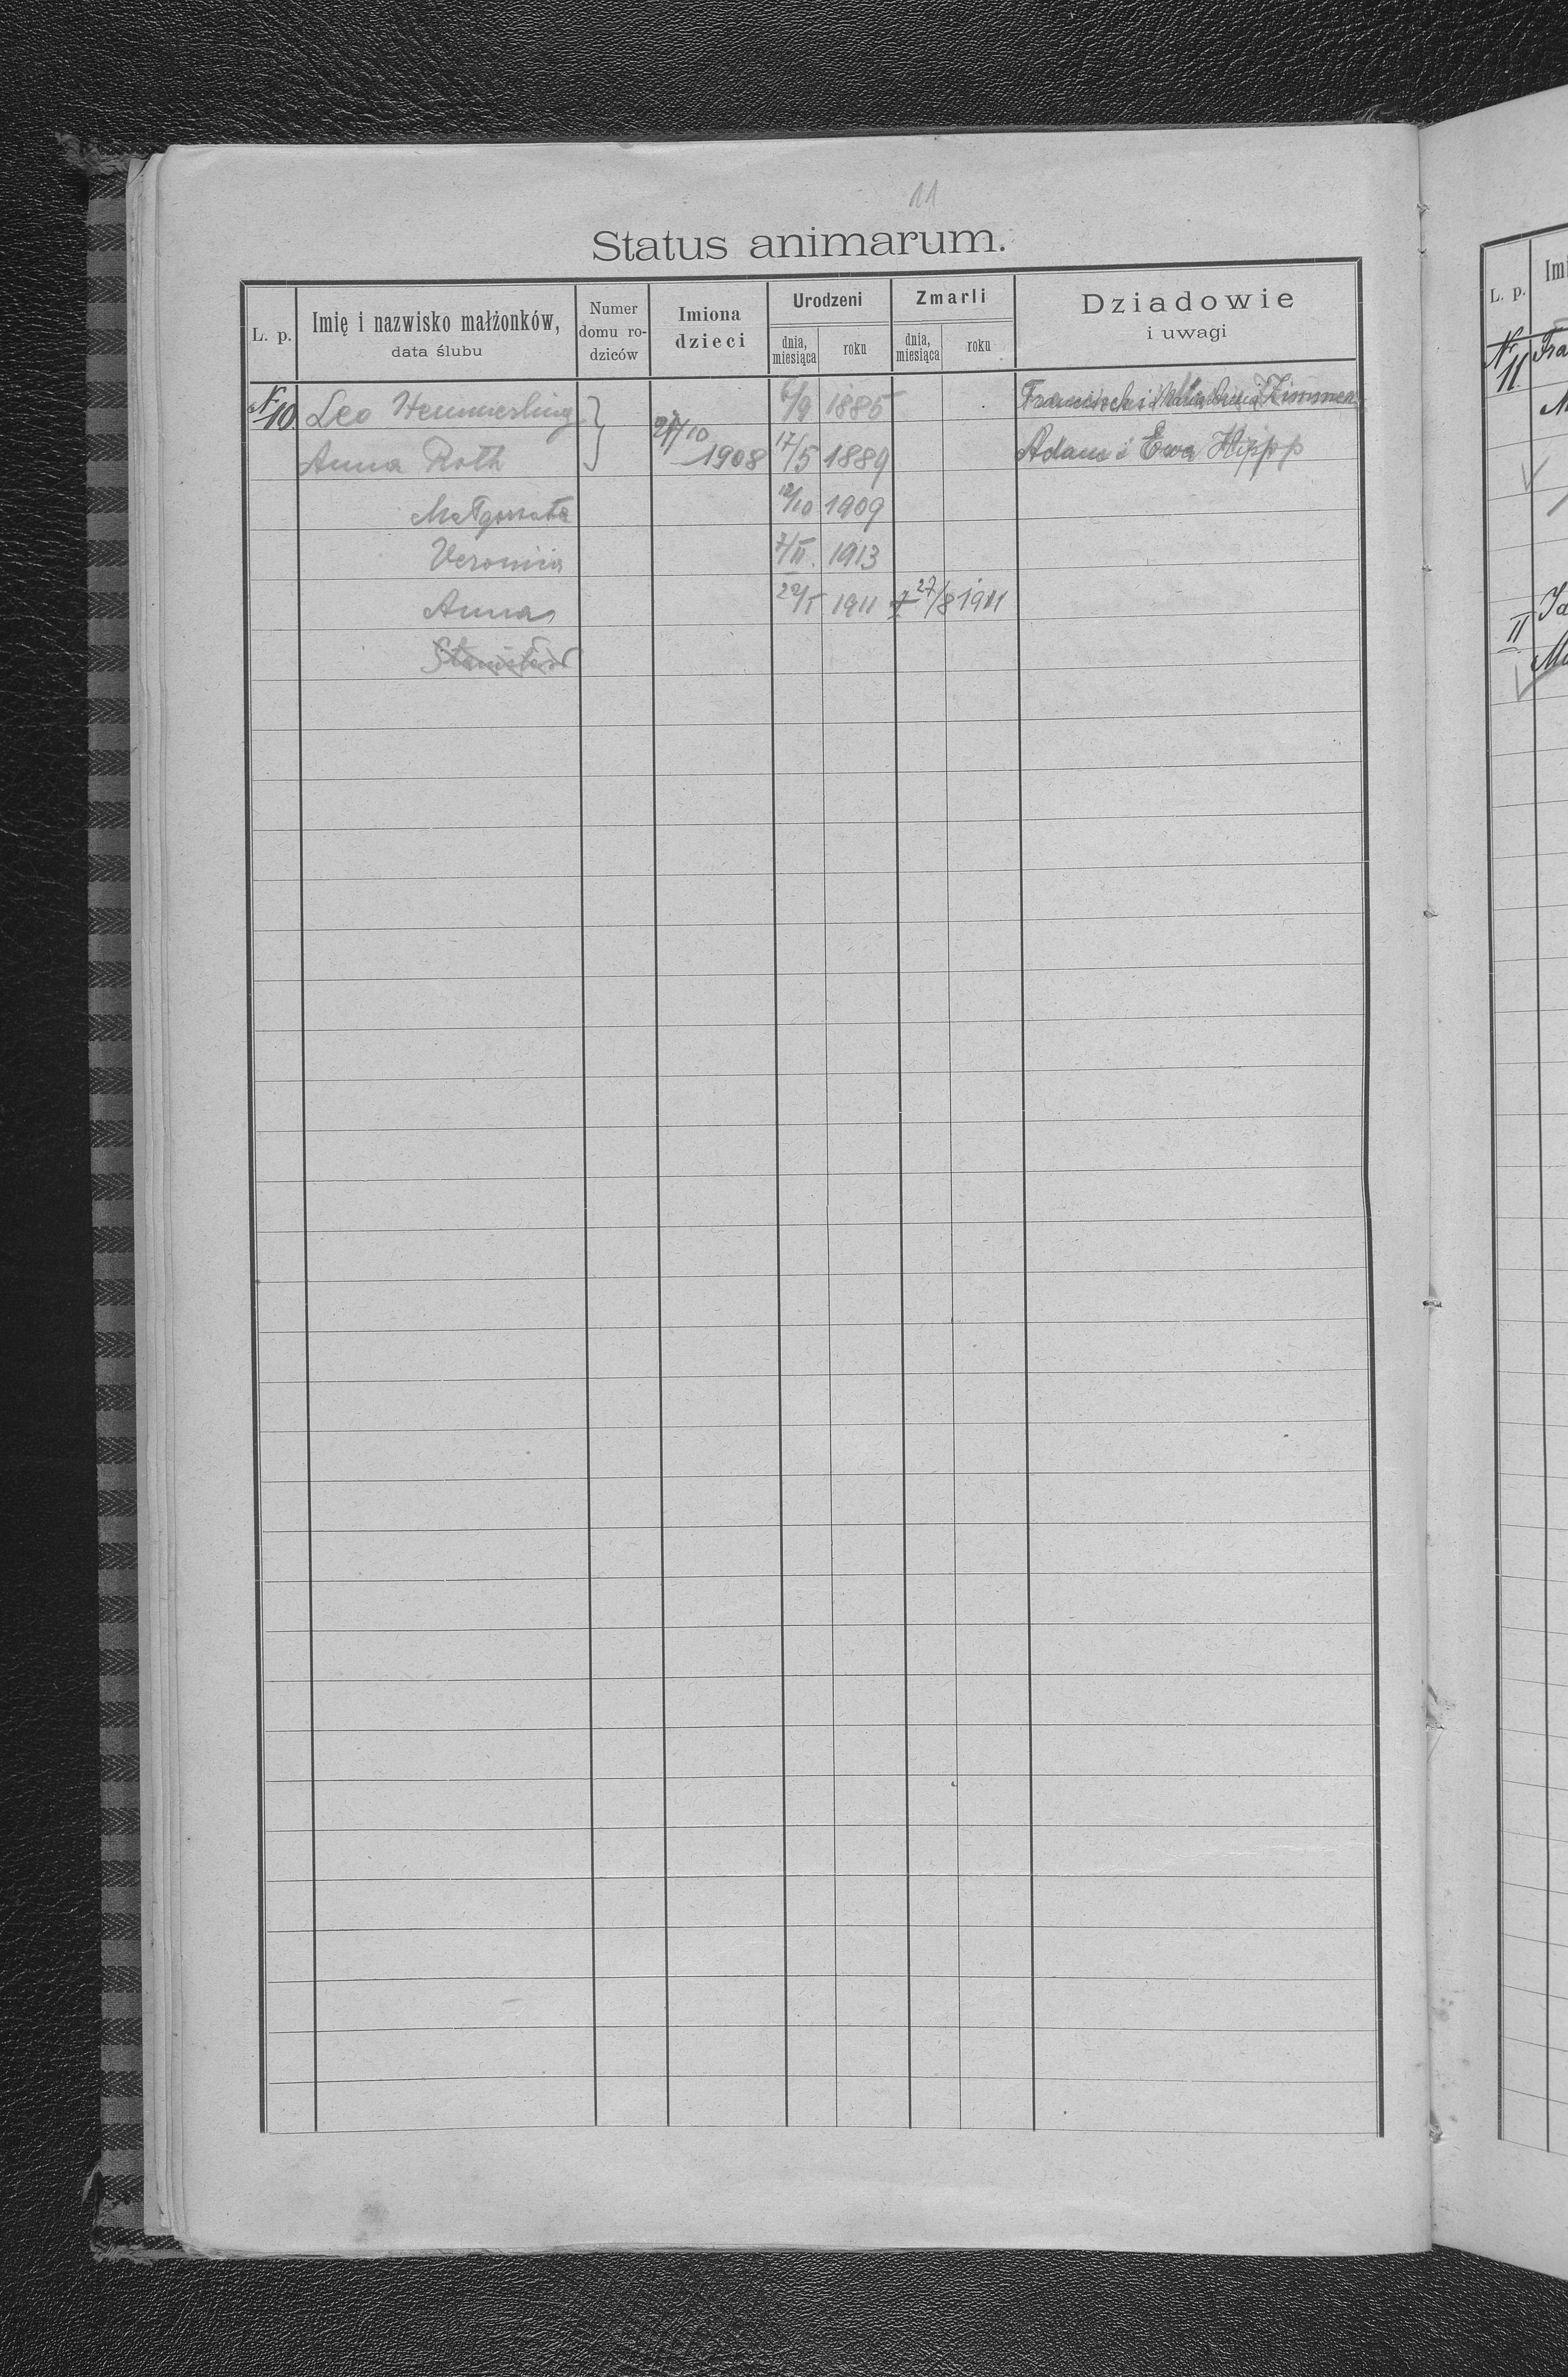 11
Status animarum.
L. p.
Imię i nazwisko małżonków,
data ślubu
Numer
domu ro-
dziców
Imiona
dzieci
Urodzeni
dnia,
miesiąca
roku
Zmarli
dnia,
miesiąca
roku
Dziadowie
i uwagi
N 10 Leo Hemmerling 6/9 1885 Zimmer
/10
Anna Roth 1908 17/5 1889 Adam i Ewa Hipp
Małgorzata 12/10 1909
Veronica 7/II. 1913
Anna 29/I 1911 † 27/8 1911
Stanisław
L. p.
Imi
N 11 Fra
M
II Ja
Ma